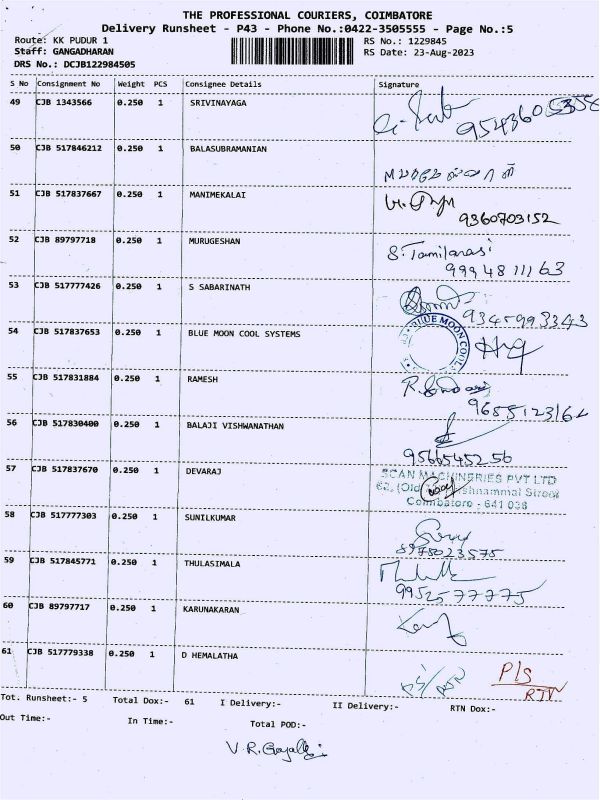 THE PROFESSIONAL COURIERS, COIMBATORE
Delivery Runsheet - P43 - Phone No.:0422-3505555 - Page No.:5
Route: KK PUDUR 1 RS No.: 1229845
Staff: GANGADHARAN RS Date: 23-Aug-2023
DRS No.: DCJB122984505
S No Consignment No Weight PCS Consignee Details Signature
49 CJB 1343566 0.250 1 SRIVINAYAGA
50 CJB 517846212 0.250 1 BALASUBRAMANIAN
51 CJB 517837667 0.250 1 MANIMEKALAI
9360703152
52 CJB 89797718 0.250 1 MURUGESHAN S. Tamilarasi
9994811163
53 CJB 517777426 0.250 1 S SABARINATH
9345993343
54 CJB 517837653 0.250 1 BLUE MOON COOL SYSTEMS BLUE MOON COOL
55 CJB 517831884 0.250 1 RAMESH
56 CJB 517830400 0.250 1 BALAJI VISHWANATHAN
9566545256
57 CJB 517837670 0.250 1 DEVARAJ SCAN MACHINERIES PVT LTD
62, (Old Street
Coimbatore - 641 038
58 CJB 517777303 0.250 1 SUNILKUMAR
8975023575
59 CJB 517845771 0.250 1 THULASIMALA
9952577775
60 CJB 89797717 0.250 1 KARUNAKARAN
61 CJB 517779338 0.250 1 D HEMALATHA P/S
RTN
Tot. Runsheet:- 5 Total Dox:- 61 I Delivery:- II Delivery:- RTN Dox:-
Out Time:- In Time:- Total POD:-